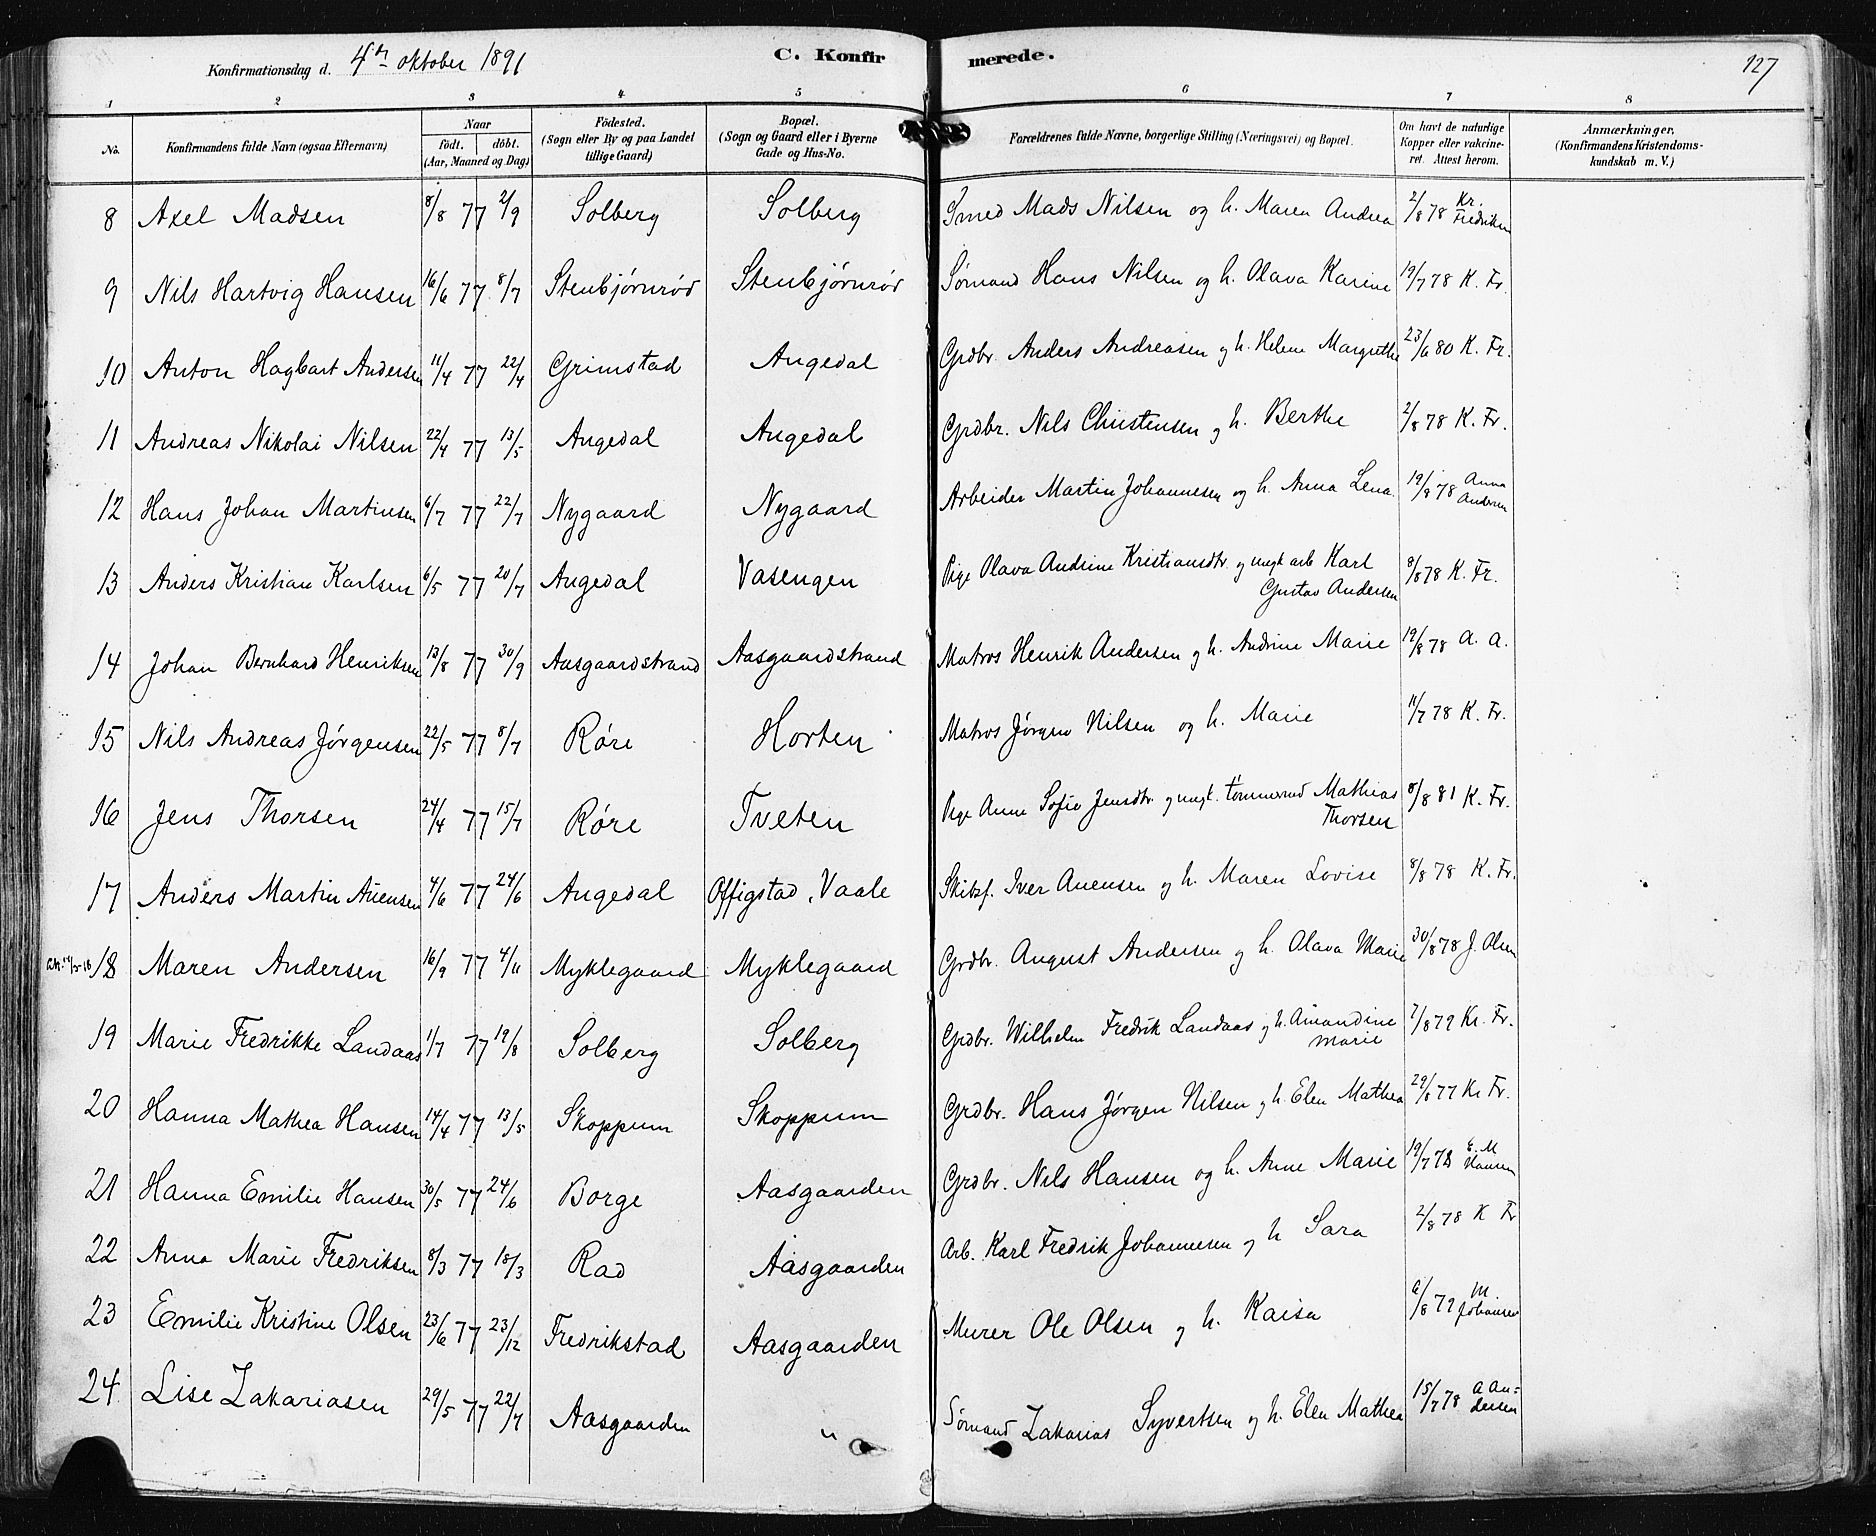 Konfirmationsdag d. 4de oktober 1891 C. Konfirmerede. 127
1 2 3 4 5 6 7 8
No. Konfirmandens fulde Navn (ogsaa Efternavn) Naar født. døbt. (Aar, Maaned og Dag) Födested. (Sogn eller By og paa Landet tillige Gaard) Bopæl. (Sogn og Gaard eller i Byerne Gade og Hus-No. Forældrenes fulde Navne, borgerlige Stilling (Næringsvei) og Bopæl. Om havt de naturlige Kopper eller vakcineret. Attest herom. Anmærkninger. (Konfirmandens Kristendomskundskab m. V.)
8 Axel Madsen 8/8 77 2/9 Solberg Solberg Smed Mads Nilsen og h. Maren Andrea 2/8 78 Kr. Fredriksen
9 Nils Hartvig Hansen 16/6 77 8/7 Stenbjørnrød Stenbjørnrød Sømand Hans Nilsen og h. Olava Karine 19/7 78 K. Fr.
10 Anton Hagbart Andersen 11/4 77 22/4 Grimstad Augedal Grdbr. Anders Andreasen og h. Helene Margrethe 23/6 80 K. Fr.
11 Andreas Nikolai Nilsen 22/4 77 13/5 Augedal Augedal Grdbr. Nils Christensen og h. Berthe 2/8 78 K. Fr.
12 Hans Johan Martinsen 6/7 77 22/7 Nygaard Nygaard Arbeider Martin Johannesen og h. Anna Lena 19/9 78 Anna Andersen
13 Anders Kristian Karlsen 6/5 77 20/7 Augedal Vasengen Pige Olava Andrine Kristiansdtr. og ungk arb Karl Gustav Andersen 8/8 78 K. Fr.
14 Johan Bernhard Henriksen 13/8 77 30/9 Aasgaardstrand Aasgaardstrand Matros Henrik Andersen og h. Andrine Marie 19/8 78 A. A.
15 Nils Andreas Jørgensen 22/5 77 8/7 Røre Horten Matros Jørgen Nilsen og h. Marie 11/7 78 K. Fr.
16 Jens Thorsen 24/4 77 15/7 Røre Tveten Pige Anne Sofie Jensdtr. og ungk. tømmermd Mathias Thorsen 8/8 81 K. Fr.
17 Anders Martin Auensen 4/6 77 24/6 Augedal Offigstad, Vaale Skibsf. Iver Auensen og h. Maren Lovise 8/8 78 K. Fr.
18 Maren Andersen 16/9 77 4/11 Myklegaard Myklegaard Grdbr. August Andersen og h. Olava Marie 30/8 78 J. Olsen
19 Marie Fredrikke Landaas 1/7 77 19/8 Solberg Solberg Grdbr. Wilhelm Fredrik Landaas og h. Amandine Marie 7/8 79 Kr. Fr.
20 Hanna Mathea Hansen 14/4 77 13/5 Skoppum Skoppum Grdbr. Hans Jørgen Nilsen og h. Elen Mathea 29/8 77 Kr Fr.
21 Hanna Emilie Hansen 30/5 77 24/6 Borge Aasgaarden Grdbr. Nils Hansen og h. Anne Marie 19/7 78 E. M Hansen
22 Anna Marie Fredriksen 8/3 77 18/3 Rad Aasgaarden Arb. Karl Fredrik Johannesen og h Sara 2/8 78 K Fr
23 Emilie Kristine Olsen 23/6 77 23/12 Fredrikstad Aasgaarden Murer Ole Olsen og h. Kaisa 6/8 79 M. Johansen
24 Lise Zakariasen 29/5 77 22/7 Aasgaarden " Sømand Zakarias Syvertsen og h. Elen Mathea 15/7 78 A Andersen